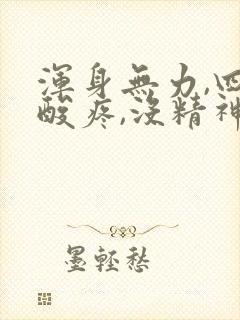 渾身無力,四
酸疼,沒精神
墨輕愁